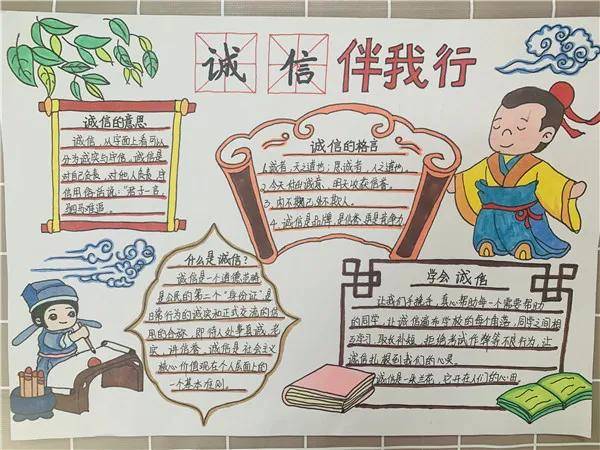 诚信伴我行
诚信的意思
诚信，从字面上看可以
分为诚实与守信。诚信是
对自己负责，对他人负责，守
信用。俗话说："君子一言，
驷马难追。
诚信的格言
1诚者，天之道也；思诚者，人之道也。
2.今天付出诚意，明天收获信誉。
3.内不欺己，外不欺人。
4.诚信是品牌，是信誉，更是竞争力
什么是诚信？
诚信是一个道德范畴
是公民的第二个"身份证"，是
日常行为的诚实和正式交流的信
用的合称，即待人处事真诚、老
实、讲信誉，诚信是社会主义
核心价值观在个人层面上的
一个基本准则。
学会诚信
让我们手携手，真心帮助每一个需要帮助
的同学，让诚信遍布学校的每个角落，同学之间相
互学习，取长补短，拒绝考试作弊等不良行为，让
诚信扎根到我们的心灵。
诚信是一朵兰花，它开在人们的心田。